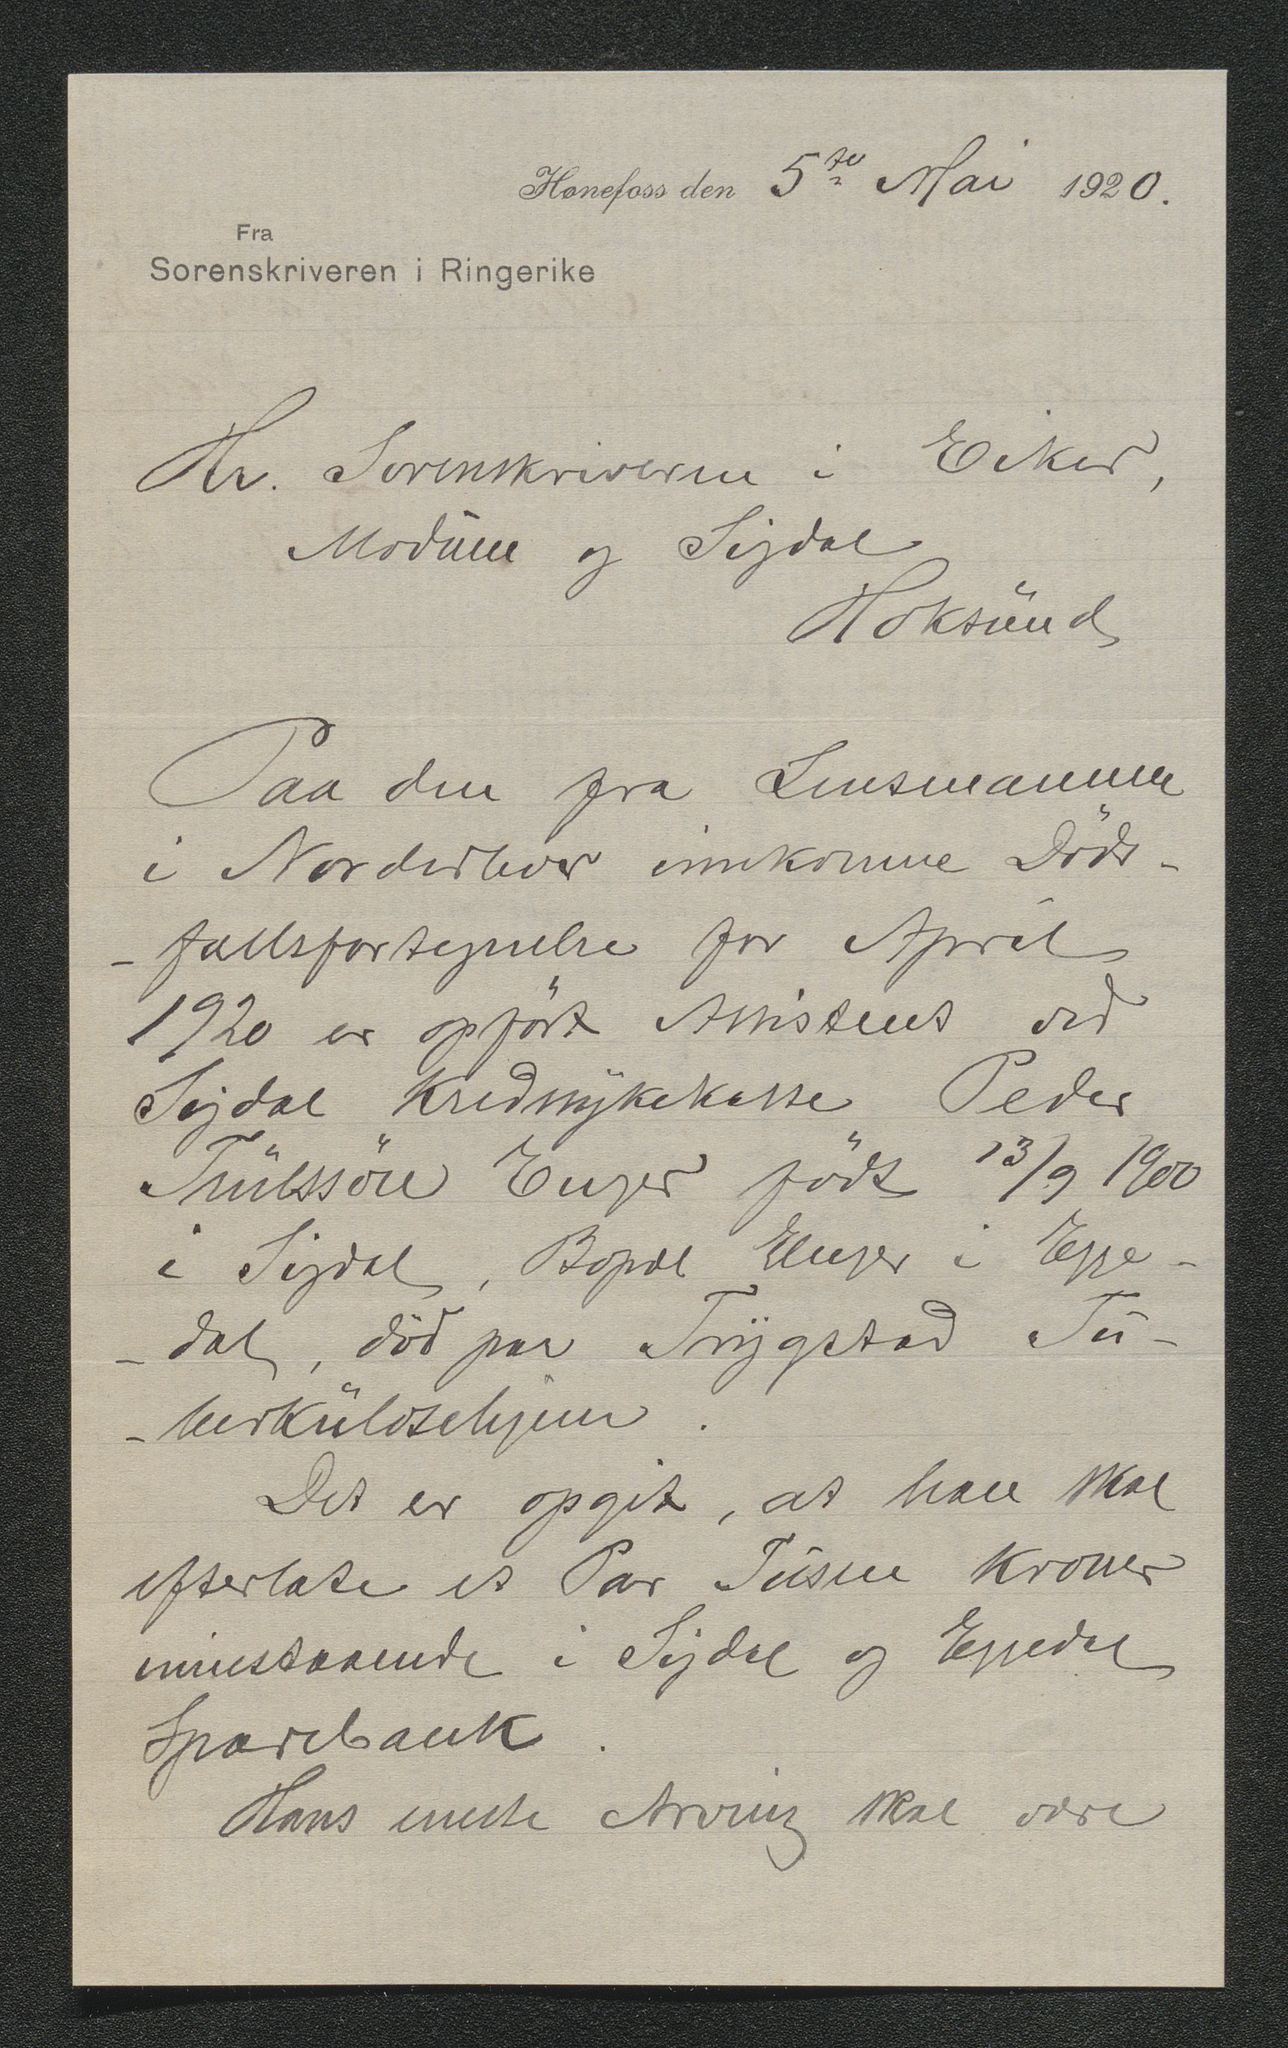 Hønefoss den 5te Mai 1920.
Fra
Sorenskriveren i Ringerike
Hr. Sorenskriveren i Eiker,
Modum og Sigdal
Hoksund
Paa den fra Lensmannen
i Norderhov innkomne Döds-
-fallsfortegnelse for April
1920 er opfört Assistent ved
Sigdal Kredsykekasse Peder
Trulssön Enger födt 13/9 1900
i Sigdal, Bopæl Enger i Egge-
-dal, död paa Trygstad Tu-
-berkulosehjem.
Det er opgit, at han skal
efterlate et Par Tusen Kroner
innestaaende i Sigdal og Eggedal
Sparebank.
Hans eneste Arving skal være